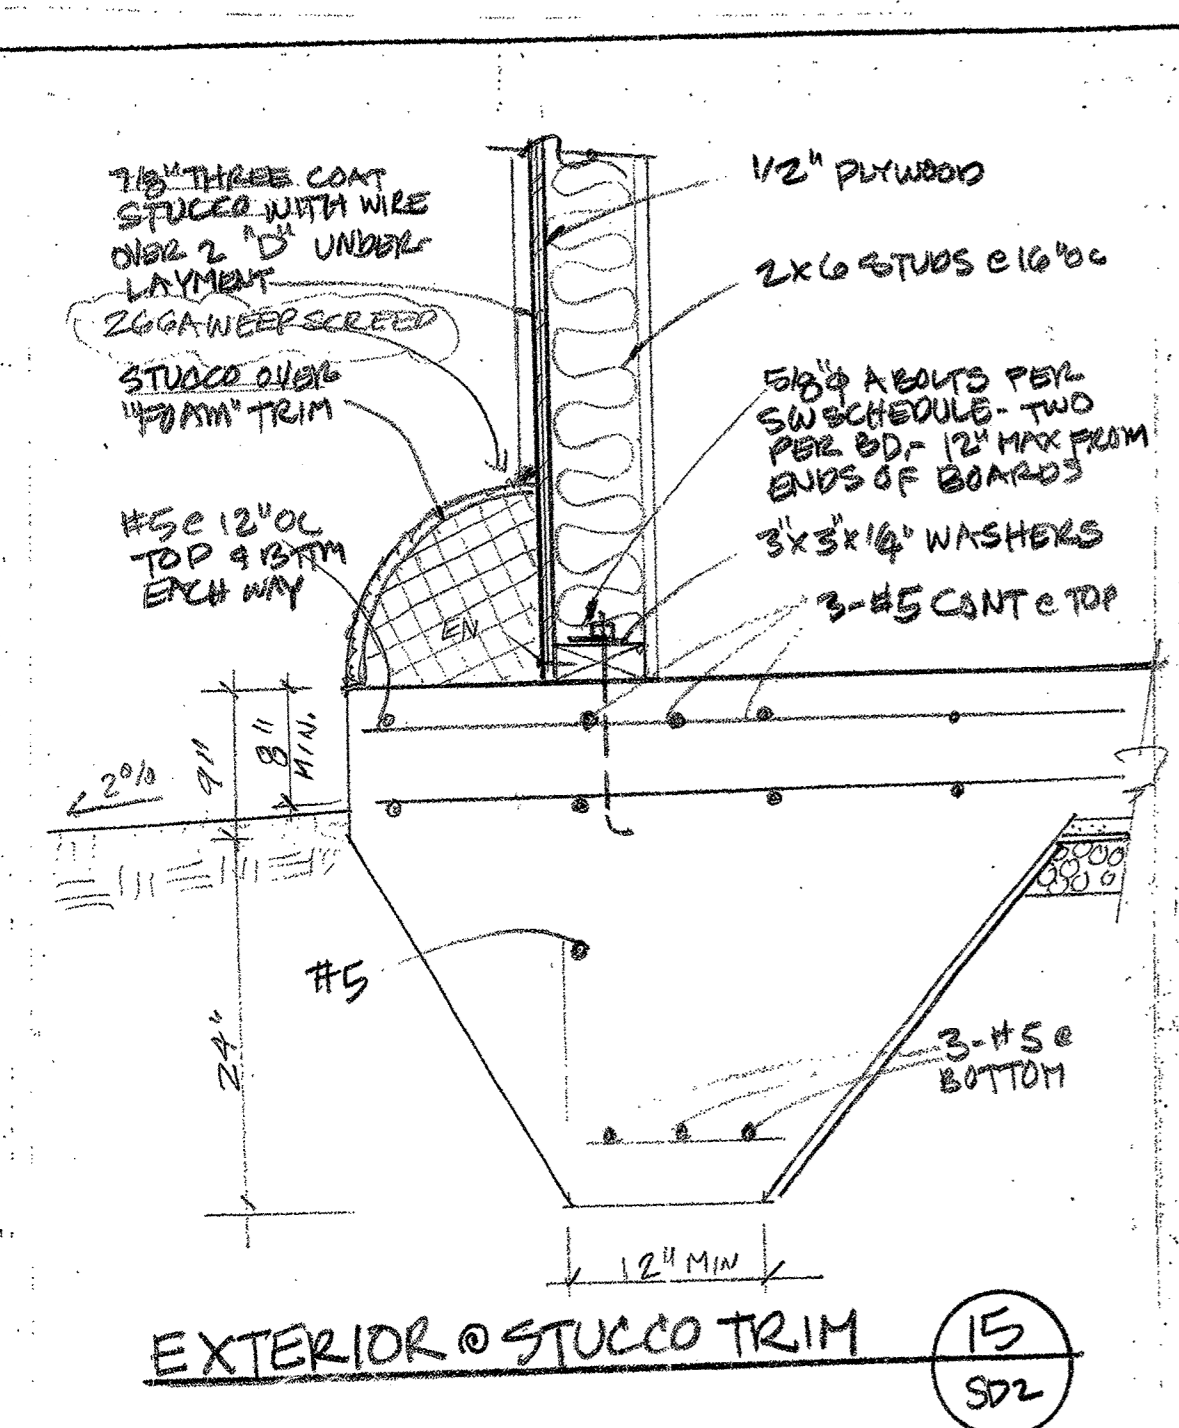 7/8" THREE COAT
STUCCO WITH WIRE
OVER 2 "D" UNDER-
LAYMENT
26GA WEEP SCREED
STUCCO OVER
"FOAM" TRIM
#5 @ 12" OC
TOP & BTTM
EACH WAY
1/2" PLYWOOD
2X6 STUDS @ 16" OC
5/8"φ A BOLTS PER
SW SCHEDULE - TWO
PER BD,- 12" MAX FROM
ENDS OF BOARDS
3"X3"X1/4" WASHERS
3-#5 CONT @ TOP
EN
9"
8"
MIN.
2%
#5
24"
3-#5 @
BOTTOM
12" MIN
EXTERIOR @ STUCCO TRIM
15
SD2